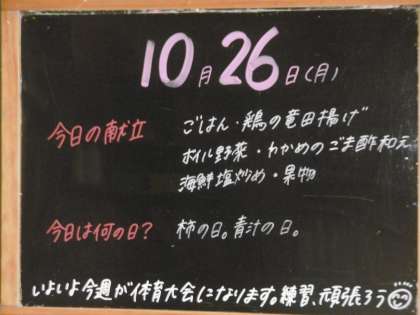 10月26日(月)
今日の献立 ごはん・鶏の竜田揚げ
ボイル野菜・わかめのごま酢和え
海鮮塩炒め・果物
今日は何の日? 柿の日。青汁の日。
いよいよ今週が体育大会になります。練習、頑張ろう